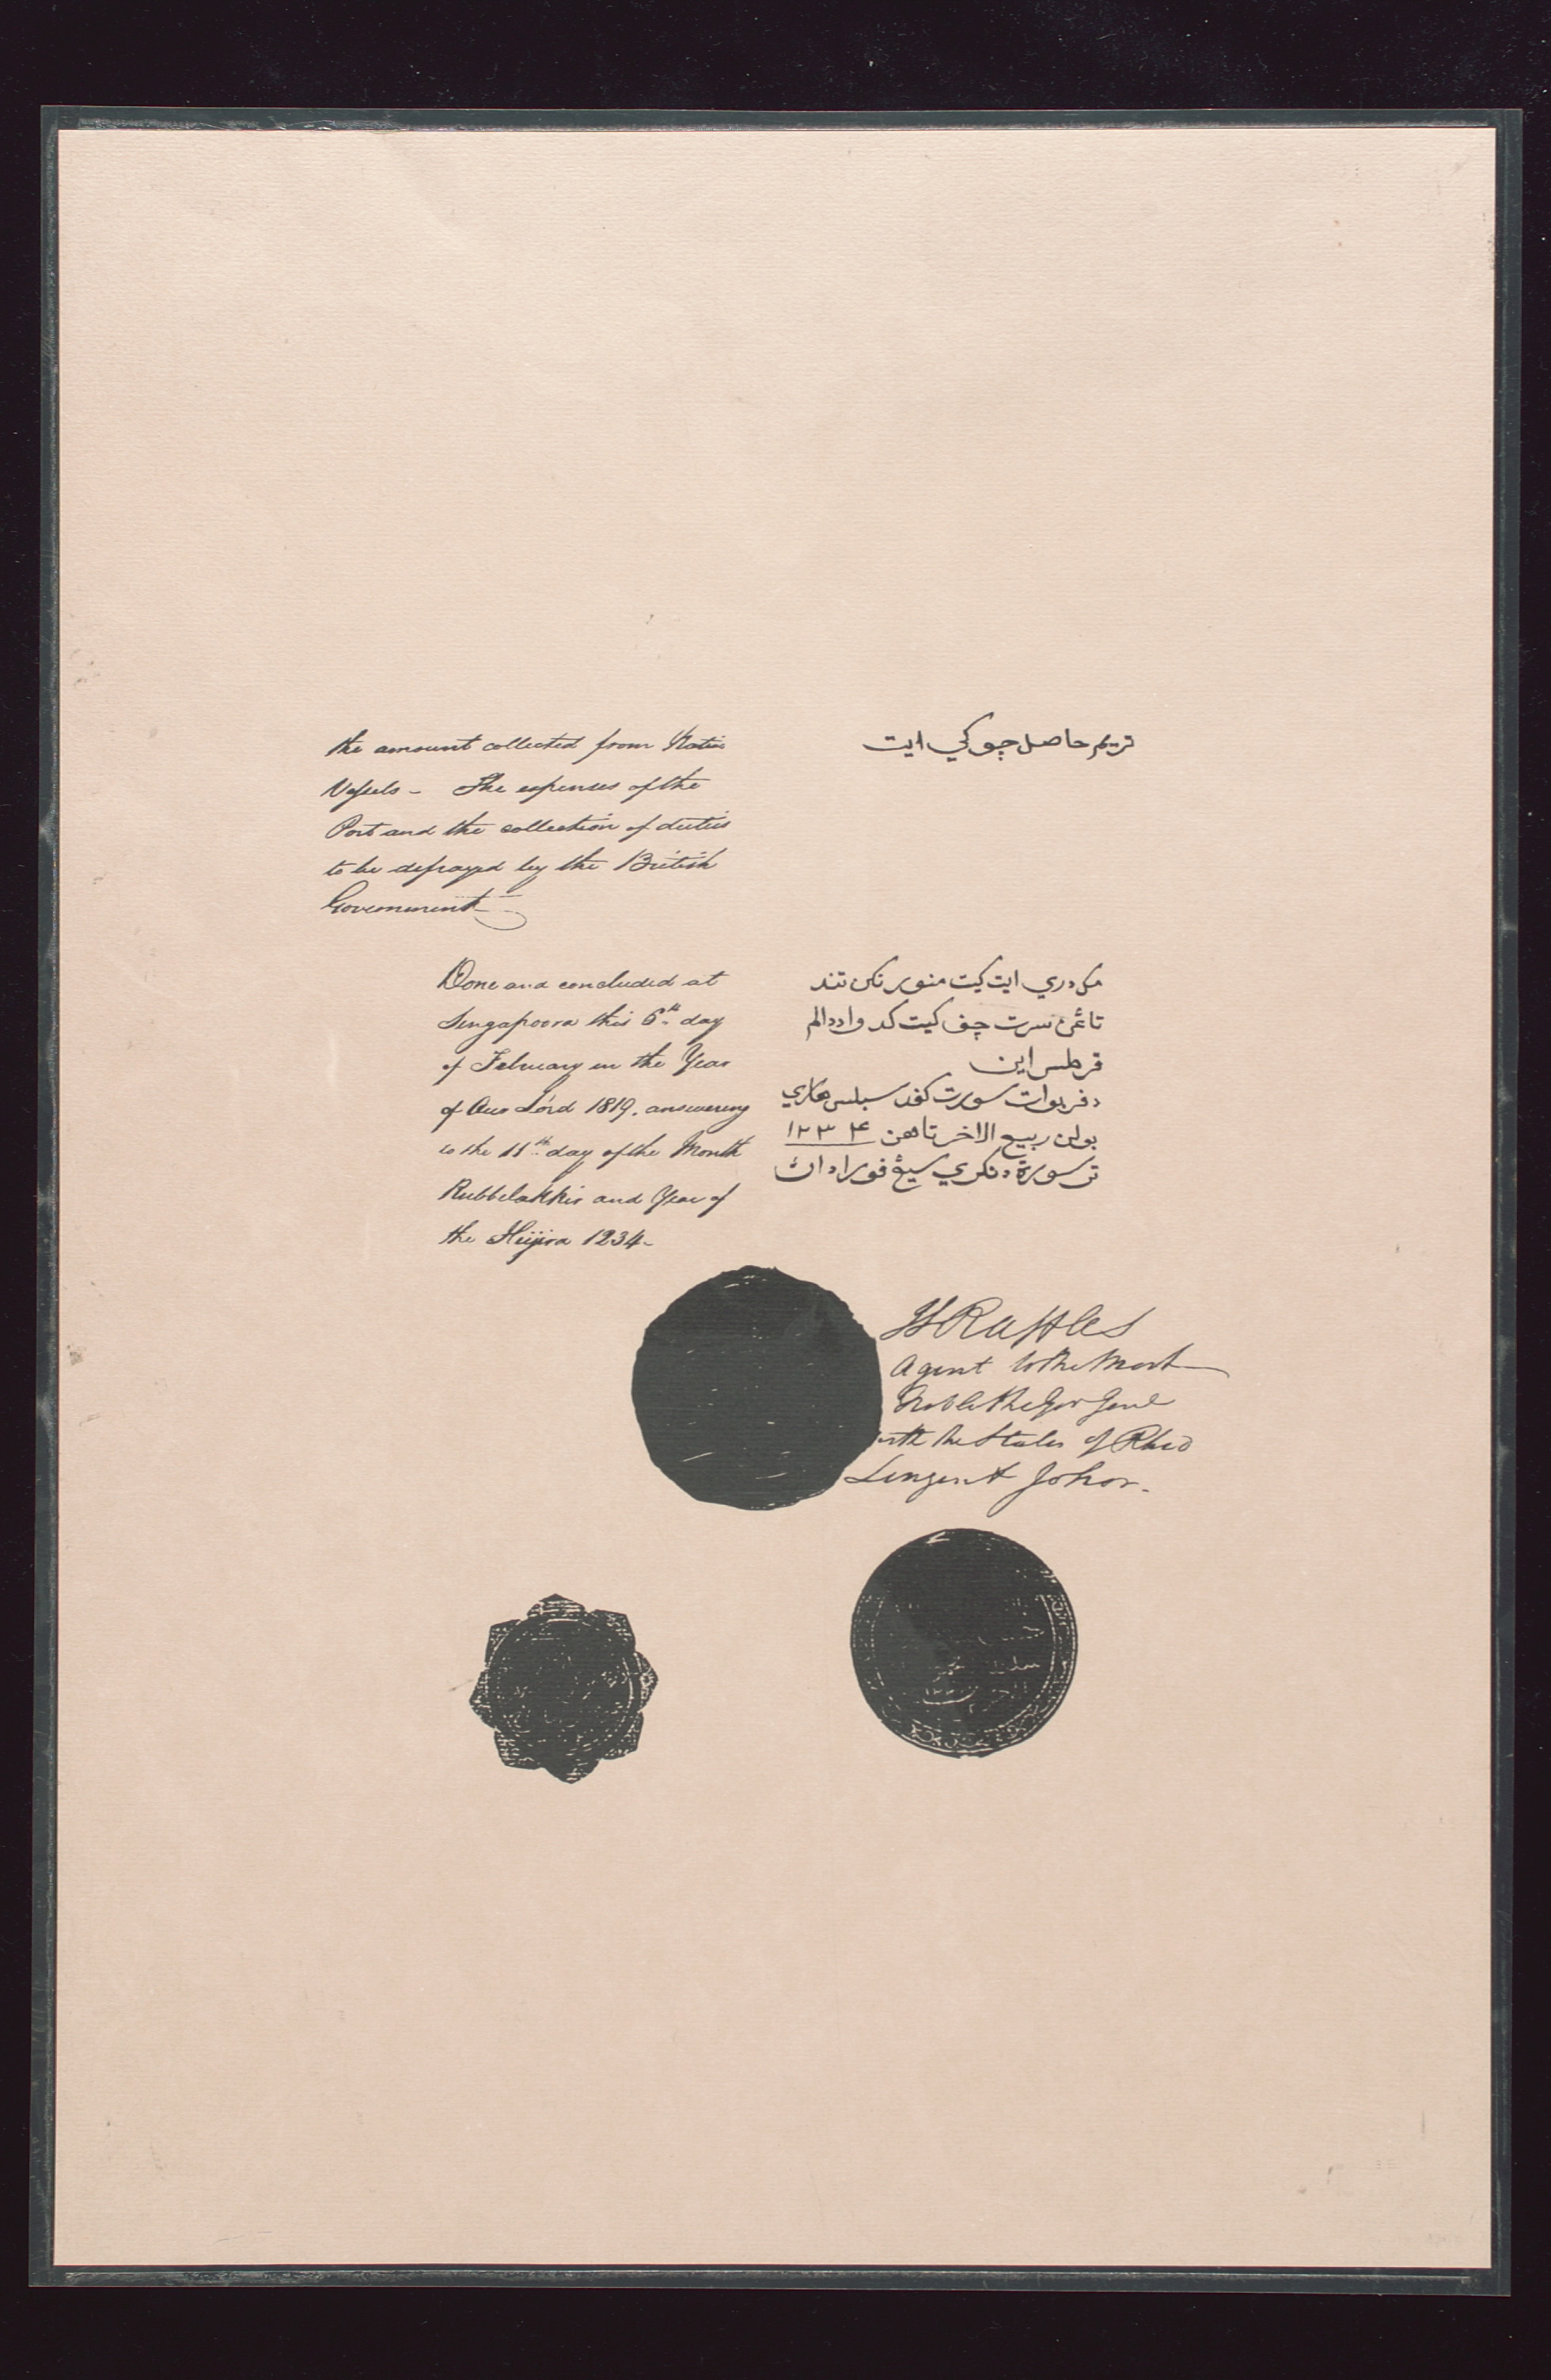 the amount collected from Native
Vessels - The expenses of the
Port and the collection of duties
to be defrayed by the British
Government
تريم حاصل جوكي ايت
Done and concluded at
Singapoora this 6th day
of February in the Year
of Our Lord 1819. answering
to the 11th day of the Month
Rubbelakhir and Year of
the Heijira 1234-
مک دري ايت کيت منورنکن تند
تاڠن سرت چڤ کيت کدوا ددالم
قرطس اين
دڤربوات سورت ڤد سبلس هاري
بولن ربيع الاخر تاهن ١٢٣۴
ترسورة دنکري سيڠڤورا اد
TS Raffles
Agent to the Most
Noble the Gov Genl
with the States of Rhio
Lingen & Johor.